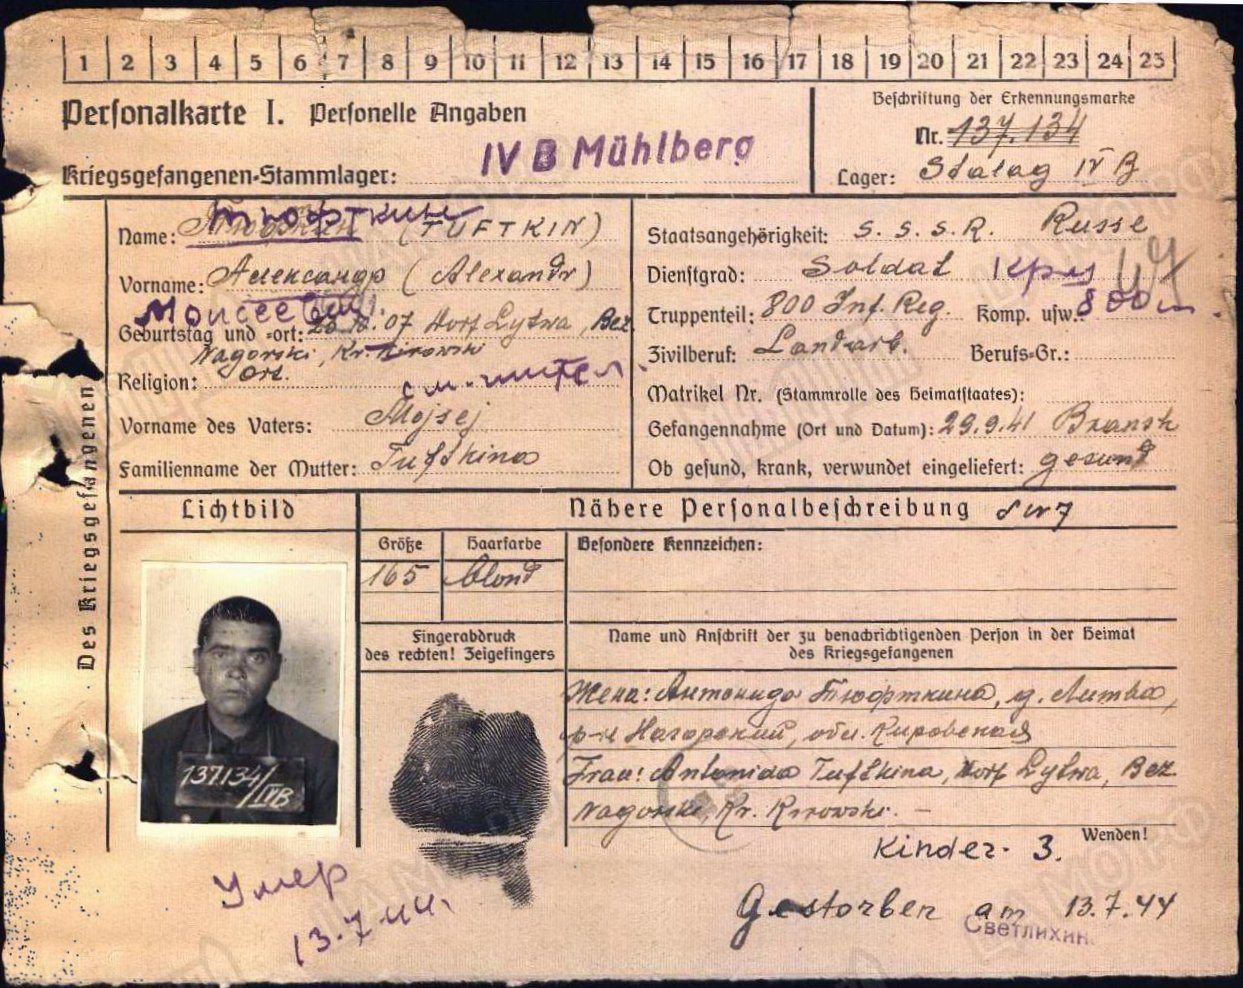 1 2 3 4 5 6 7 8 9 10 11 12 13 14 15 16 17 18 19 20 21 22 23 24 25
Personalkarte I. Personelle Angaben
Kriegsgefangenen-Stammlager: IV B Mühlberg
Beschriftung der Erkennungsmarke
Nr. 137.134
Lager: Stalag IV B
Des Kriegsgefangenen
Тюфткин
Name: Тюфткин (TUFTKIN)
Vorname: Александр (Alexandr)
Моисеевич
Geburtstag und -ort: .07 Dorf Lytwa, Bez.
Nagorski, Kr. Kirowski
Religion: Ort.
Vorname des Vaters: Mojsej
Familienname der Mutter: Tuftkina
Staatsangehörigkeit: S.S.S.R. Russe
Dienstgrad: Soldat
Truppenteil: 800 Inf. Reg. Komp. usw.: 800
Zivilberuf: Landarb. Berufs-Gr.:
Matrikel Nr. (Stammrolle des Heimatstaates):
Gefangennahme (Ort und Datum): 29.9.41 Bransk
Ob gesund, krank, verwundet eingeliefert: gesund
Lichtbild
Nähere Personalbeschreibung
Größe Haarfarbe Besondere Kennzeichen:
165 blond
Fingerabdruck
des rechten! Zeigefingers
Name und Anschrift der zu benachrichtigenden Person in der Heimat
des Kriegsgefangenen
137.134/IVB
Жена: Антонида Тюфткина, д. Литва,
р-н Нагорский, обл. Кировская
Frau: Antonida Tuftkina, Dorf Lytwa, Bez.
Nagorski, Kr. Kirowski. –
Wenden!
Kinder - 3.
Умер
13.7.44.
Gestorben am 13.7.44
Светлихин.